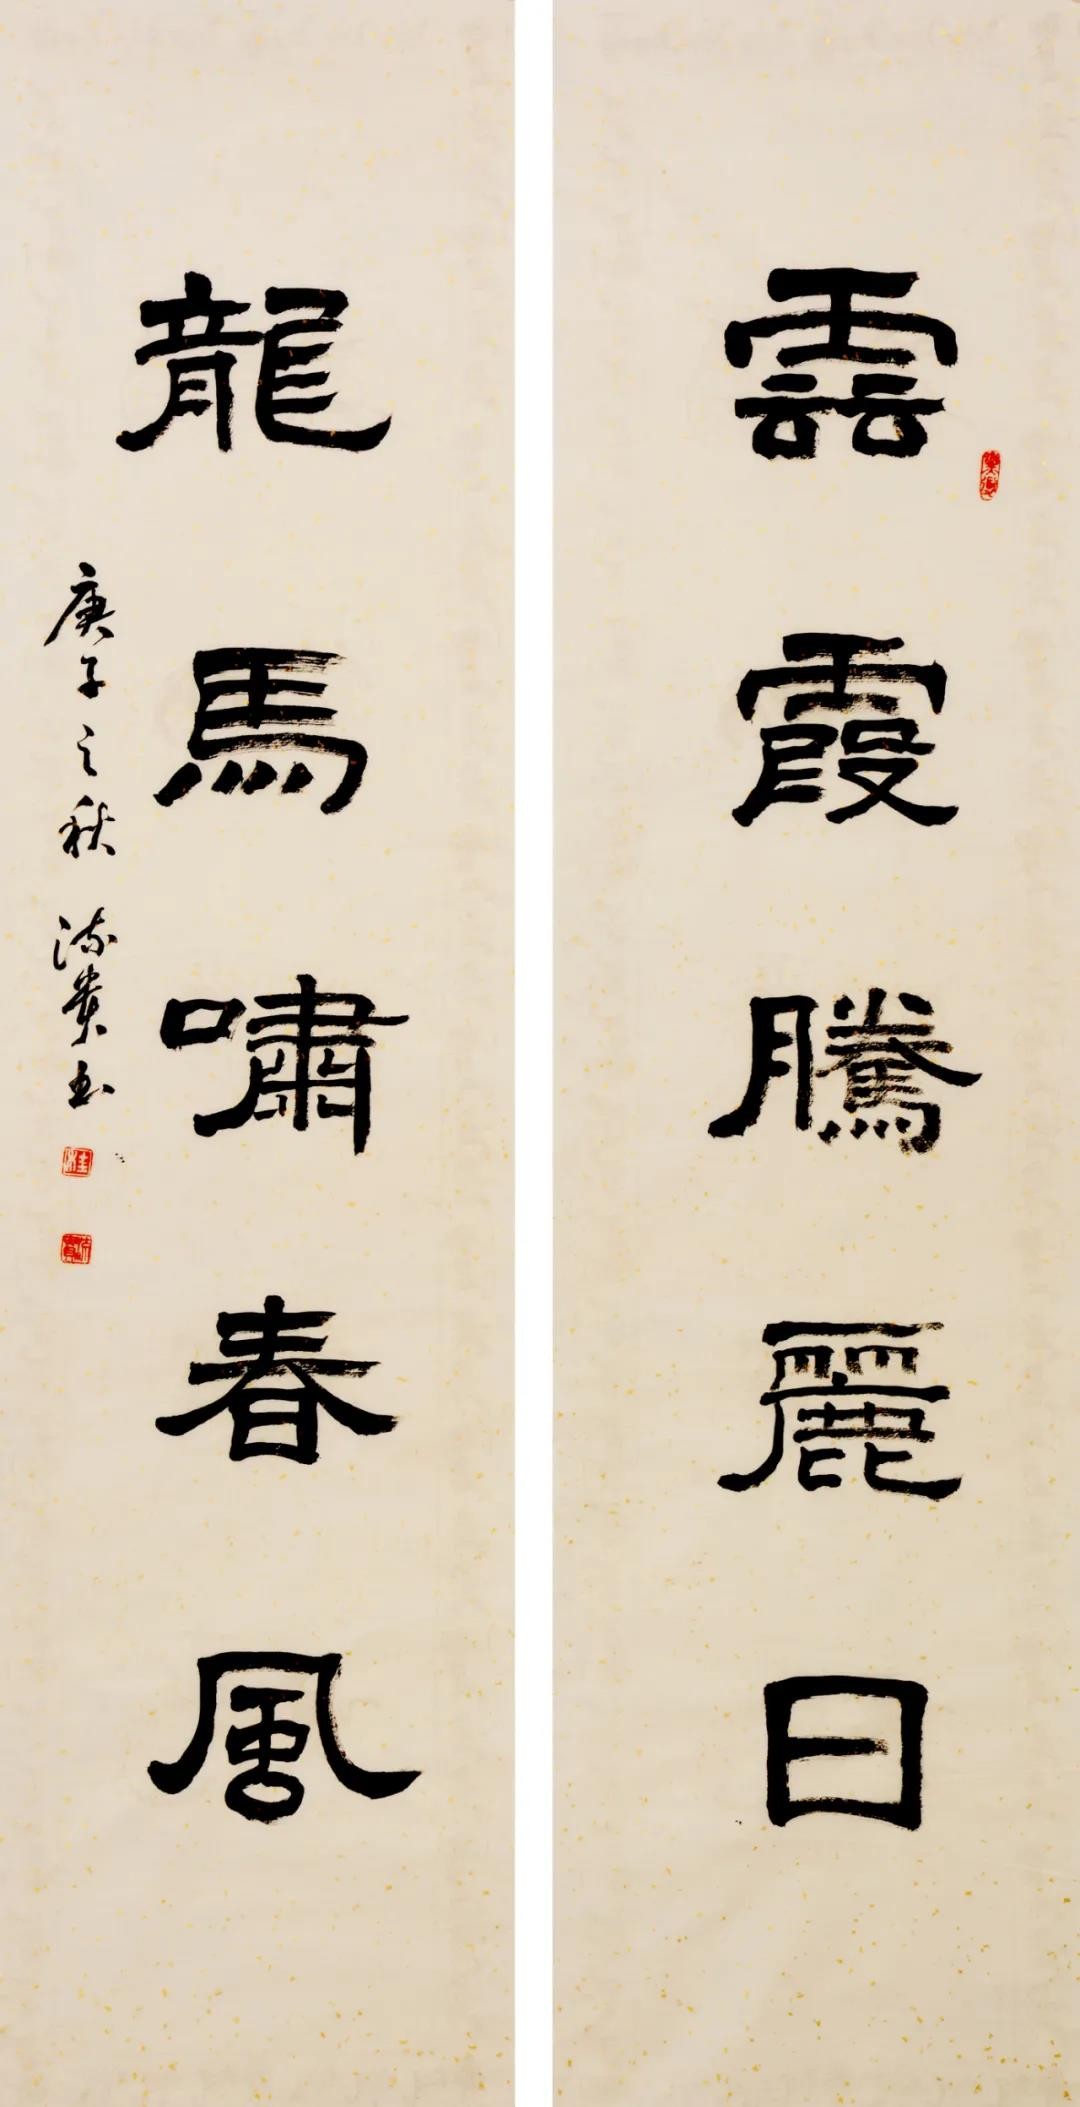 雲霞騰麗日
龍馬嘯春風
庚子之秋 流貴书